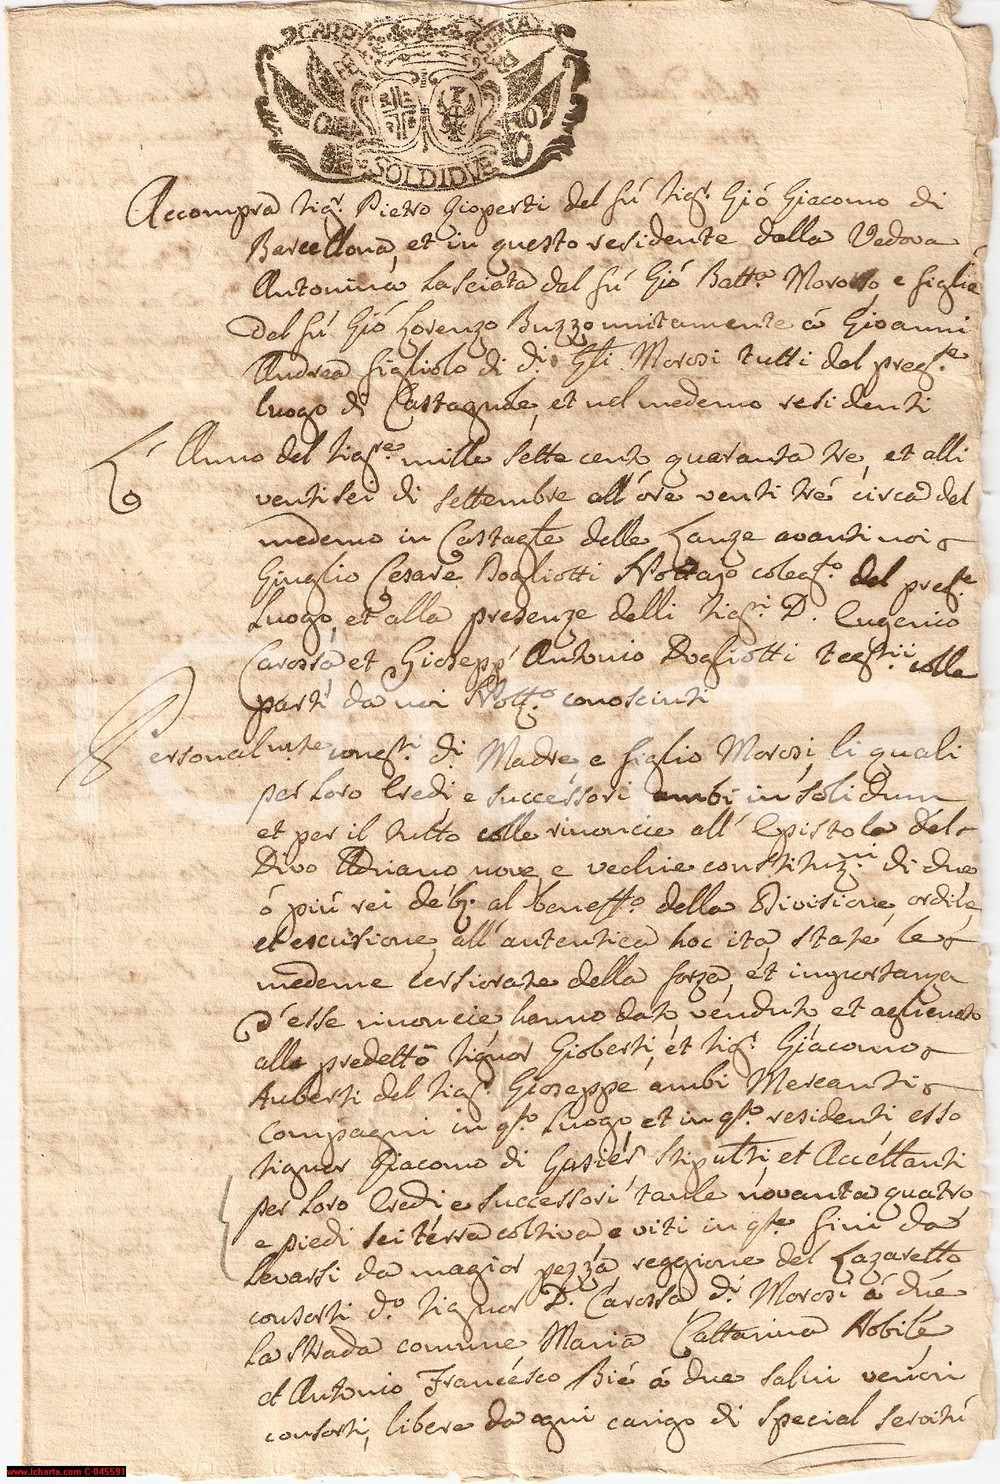 SOLDI DVE
Accompra Sig.r Pietro Gioberti del fù Sig.r Gió Giacomo di
Barcellona, et in questo residente dalla Vedova
Antonina Lasciata dal fù Gió Batt.a Morosso e figlia
del fù Gió Lorenzo Buzzo unitamente à Gioanni
Andrea figliolo di d.i Gli Morosi tutti del pres.te
luogo di Castagnole, et nel medemo residenti
L'Anno del Sig.re mille sette cento quaranta tre, et alli
venti sei di settembre all'ore venti tré circa del
medemo in Castag.le delle Lanze avanti noi
Giuglio Cesare Bogliotti Nottajo coleg.to del pres.te
Luogo, et alla presenza delli Sig.ri D. Eugenio
Carossa et Giosepp' Antonio Dogliotti testii colle
parti da noi Nott.o conosciuti
Personalm.te conest.i d.i Madre e figlio Morosi, li quali
per Loro Eredi e successori ambi in solidum
et per il tutto colle rinoncie all'Epistola del
Divo Adriano nove e vechie constituz.ni di due
ó più rei deb. al beneff.o della Divisione, ordine,
et escusione, all'autentica hoc ita, state le
medeme cersiorate della forza, et importanza
d'esse rinoncie, hanno dato, vénduto et aglienato
alle predetto Signor Gioberti, ét Sig.r Giacomo
Auberti del Sig.r Gioseppe ambi Mercanti
Compagni in q.to Luogo et in q.to residenti esso
Signor Giacomo di Gasiér stiputti, et Accéttanti
per Loro Eredi e successori tavle novanta quatro
e piedi sei térra coltiva e viti in q.ste fini da
Levarsi da magior pezza reggione del Lazaretto
consorti d.o Signor D. Carossa d.i Morosi á due
La strada comune Maria Cattarina Nobilé
et Antonio Francésco Bié á due salvi veriori
consorti, libere da ogni carigo di special servitù
www.icharta.com C-045591